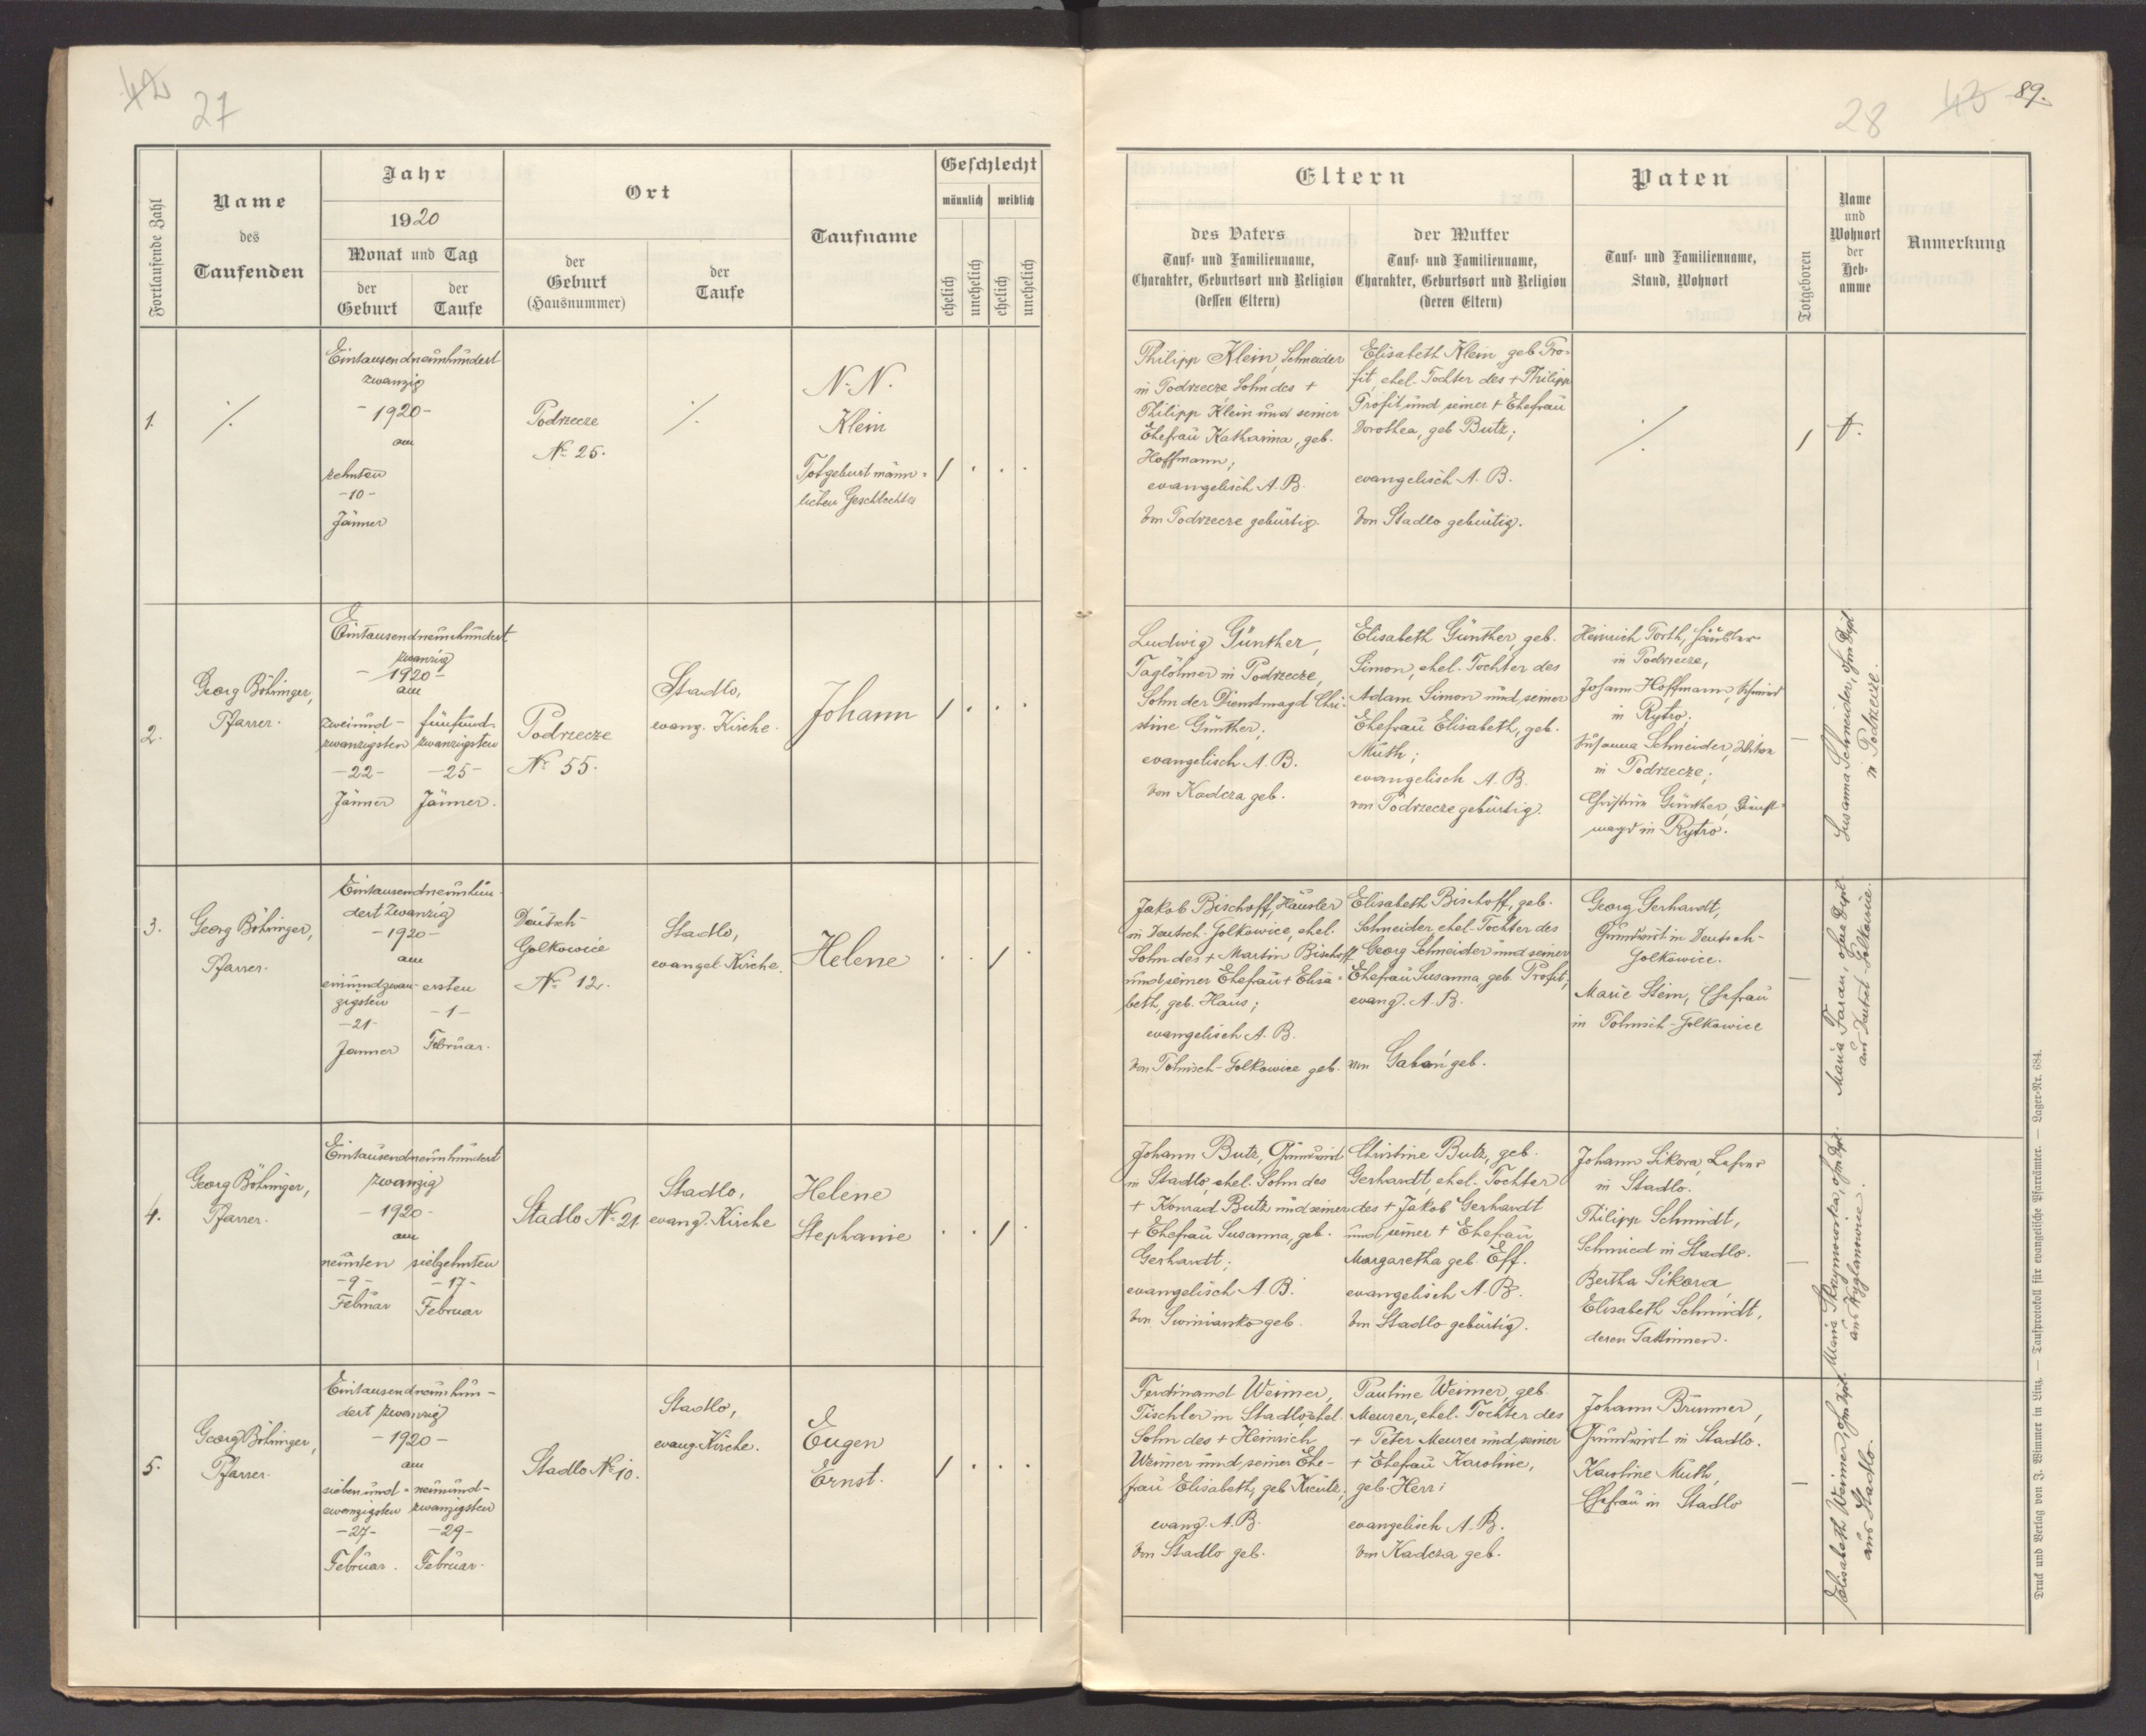 42
27
28
43
89.
Fortlaufende Zahl
Name
des
Taufenden
Jahr
1920
Monat und Tag
der
Geburt
der
Taufe
Ort
der
Geburt
(Hausnummer)
der
Taufe
Taufname
Geschlecht
männlich weiblich
ehelich
unehelich
ehelich
unehelich
Eltern
des Vaters
Tauf- und Familienname,
Charakter, Geburtsort und Religion
(dessen Eltern)
der Mutter
Tauf- und Familienname,
Charakter, Geburtsort und Religion
(deren Eltern)
Paten
Tauf- und Familienname,
Stand, Wohnort
Totgeboren
Name
und
Wohnort
der
Heb-
amme
Anmerkung
1.
⁒
Eintausendneunhundert
zwanzig
- 1920 -
am
zehnten
- 10 -
Jänner
Podrzecze
No 25.
⁒
N. N.
Klein
Totgeburt männ-
lichen Geschlechtes
/ . . .
Philipp Klein, Schneider
in Podrzecze Sohn des +
Philipp Klein und seiner
Ehefrau Katharina, geb.
Hoffmann;
evangelisch A. B.
von Podrzecze gebürtig.
Elisabeth Klein, geb. Pro-
fit, ehel. Tochter des + Philipp
Profit und seiner + Ehefrau
Dorothea, geb. Butz;
evangelisch A. B.
von Stadlo gebürtig.
⁒
/
2.
Georg Böhringer,
Pfarrer.
Eintausendneunhundert
zwanzig
- 1920 -
am
zweiund-
zwanzigsten
- 22 -
Jänner
fünfund-
zwanzigsten
- 25 -
Jänner.
Podrzecze
No 55.
Stadlo,
evang. Kirche.
Johann
/ . . .
Ludwig Günther,
Taglöhner in Podrzecze,
Sohn der Dienstmagd Chri-
stine Günther;
evangelisch A. B.
von Kadcza geb.
Elisabeth Günther, geb.
Simon, ehel. Tochter des
Adam Simon und seiner
Ehefrau Elisabeth, geb.
Muth;
evangelisch A. B.
von Podrzecze gebürtig.
Heinrich Torth, Häusler
in Podrzecze,
Johann Hoffmann, Schmied
in Rytro;
Susanna Schneider,
in Podrzecze;
Christine Günther, Dienst-
magd in Rytro.
—
Susanna Schneider, ohne Dipl.
in Podrzecze.
3.
Georg Böhringer,
Pfarrer.
Eintausendneunhun-
dert zwanzig
- 1920 -
am
einundzwan-
zigsten
- 21 -
Jänner
ersten
- 1 -
Februar.
Deutsch-
Golkowice
No 12.
Stadlo,
evangel. Kirche.
Helene
. . / .
Jakob Bischoff, Häusler
in Deutsch-Golkowice, ehel.
Sohn des + Martin Bischoff
und seiner Ehefrau + Elisa-
beth, geb. Haus;
evangelisch A. B.
von Polnisch-Golkowice geb.
Elisabeth Bischoff, geb.
Schneider, ehel. Tochter des
Georg Schneider und seiner
Ehefrau Susanna, geb. Profit;
evang. A. B.
von Gabań geb.
Georg Gerhardt,
Grundwirt in Deutsch-
Golkowice.
Marie Stein, Ehefrau
in Polnisch-Golkowice
—
Maria Faran, ohne Dipl.
aus Deutsch-Golkowice.
4.
Georg Böhringer,
Pfarrer.
Eintausendneunhundert
zwanzig
- 1920 -
am
neunten
- 9 -
Februar
siebzehnten
- 17 -
Februar
Stadlo No 21.
Stadlo,
evang. Kirche
Helene
Stephanie
. . / .
Johann Butz, Grundwirt
in Stadlo, ehel. Sohn des
+ Konrad Butz und seiner
+ Ehefrau Susanna, geb.
Gerhardt;
evangelisch A. B.
von Swiniarsko geb.
Christine Butz, geb.
Gerhardt, ehel. Tochter
des + Jakob Gerhardt
und seiner + Ehefrau
Margaretha geb. Eff.
evangelisch A. B.
von Stadlo gebürtig.
Johann Sikora, Lehrer
in Stadlo.
Philipp Schmidt,
Schmied in Stadlo.
Bertha Sikora,
Elisabeth Schmidt,
deren Gattinnen.
—
Maria ohne Dipl.
5.
Georg Böhringer,
Pfarrer.
Eintausendneunhun-
dert zwanzig
- 1920 -
am
siebenund-
zwanzigsten
- 27 -
Februar.
neunund-
zwanzigsten
- 29 -
Februar.
Stadlo No 10.
Stadlo,
evang. Kirche.
Eugen
Ernst.
/ . . .
Ferdinand Weimer,
Tischler in Stadlo, ehel.
Sohn des + Heinrich
Weimer und seiner Ehe-
frau Elisabeth, geb. Kreutz;
evang. A. B.
von Stadlo geb.
Pauline Weimer, geb.
Meurer, ehel. Tochter des
+ Peter Meurer und seiner
+ Ehefrau Karoline,
geb. Herr;
evangelisch A. B.
von Kadcza geb.
Johann Brunner,
Grundwirt in Stadlo.
Karoline Muth,
Ehefrau in Stadlo
—
Elisabeth Weimer, ohne Dipl.
aus Stadlo.
Druck und Verlag von J. Wimmer in Linz. — Taufprotokoll für evangelische Pfarrämter. — Lager-Nr. 684.